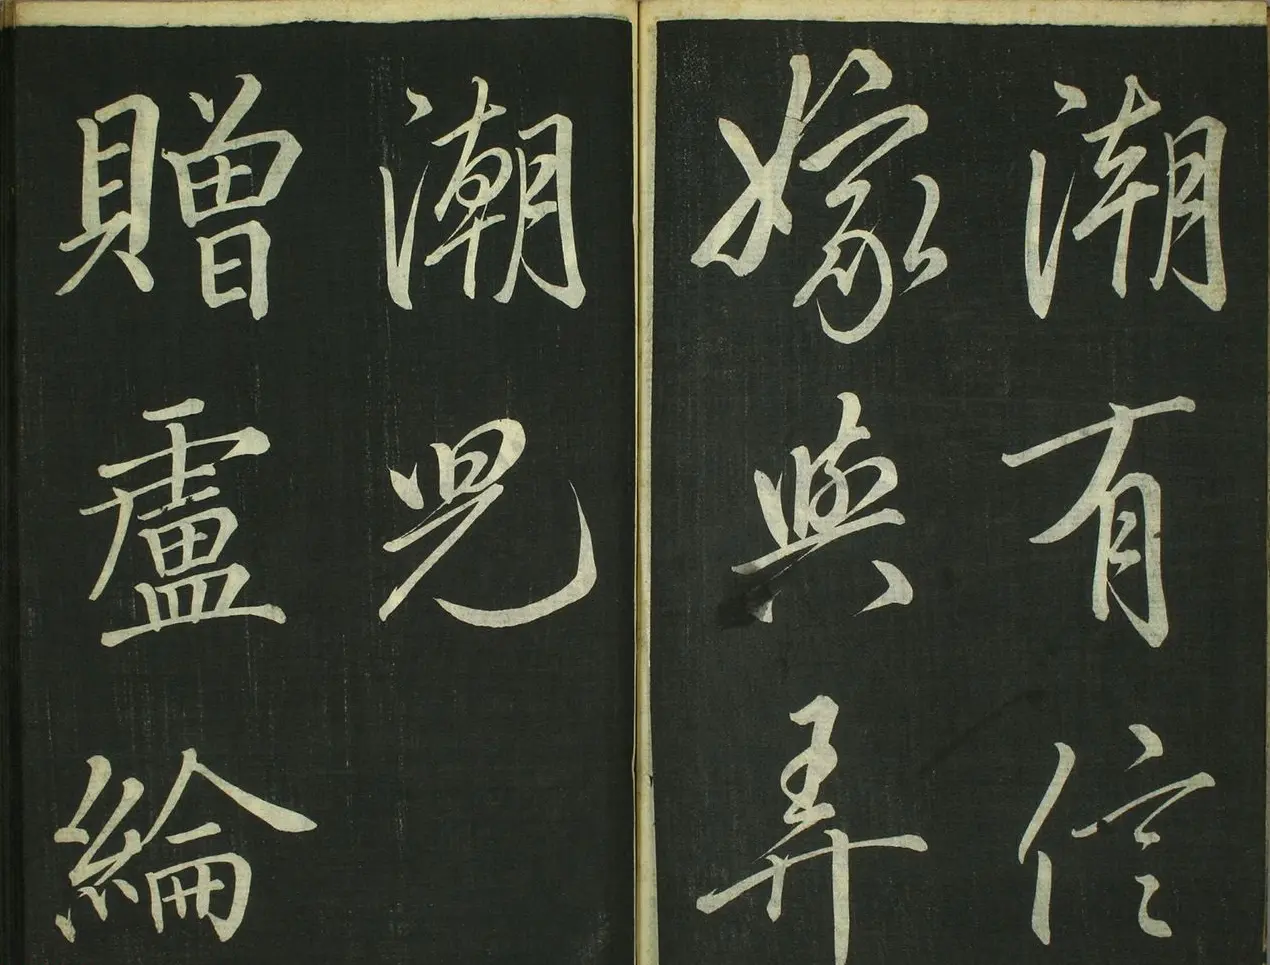 潮有信
嫁與弄
潮兒
贈盧綸